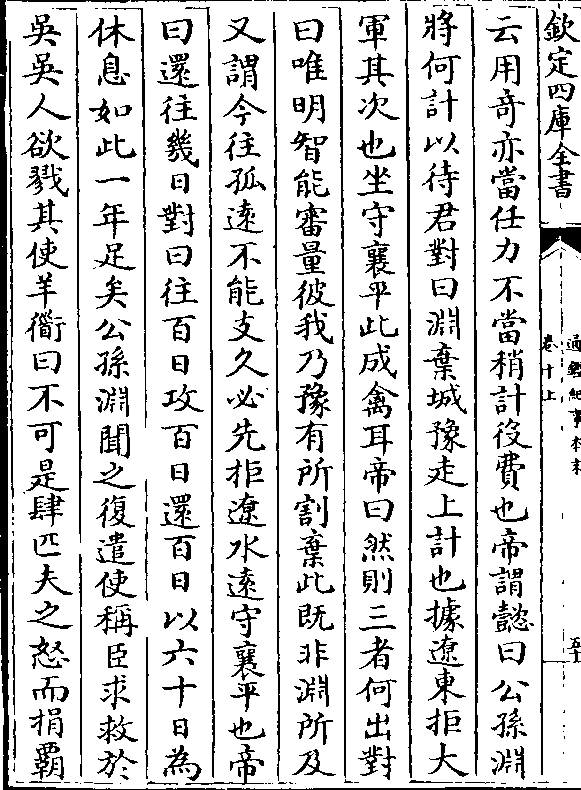 欽定四庫全書
通鑑紀事本末
卷十上
云用奇亦當任力不當稍計役費也帝謂懿曰公孫淵
將何計以待君對曰淵棄城豫走上計也據遼東拒大
軍其次也坐守襄平此成禽耳帝曰然則三者何出對
曰唯明智能審量彼我乃豫有所割棄此既非淵所及
又謂今往孤遠不能支久必先拒遼水遠守襄平也帝
曰還往幾日對曰往百日攻百日還百日以六十日為
休息如此一年足矣公孫淵聞之復遣使稱臣求救於
吳吳人欲戮其使羊衜曰不可是肆匹夫之怒而捐霸